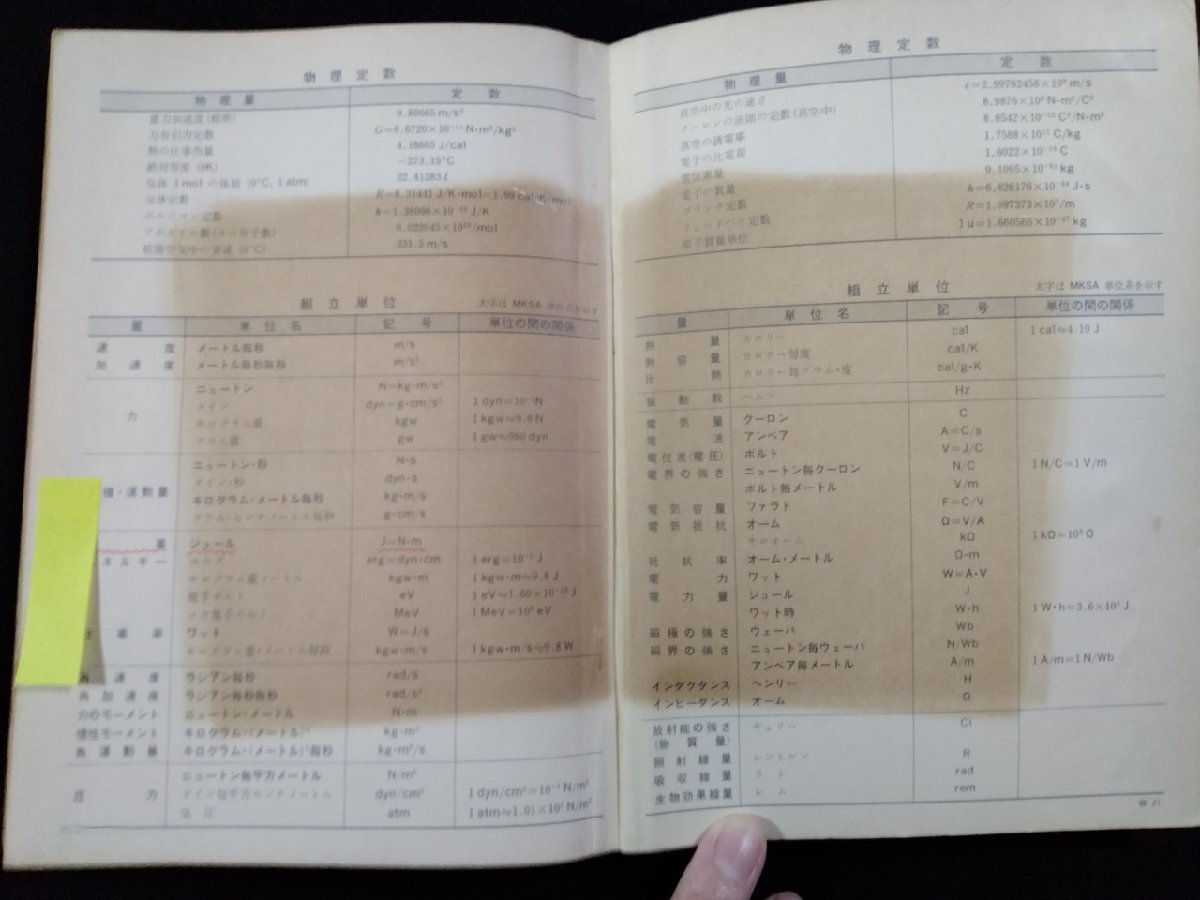 物理定数
物理量 定数
重力加速度(標準) 9.80665 m/s²
万有引力定数 G=6.6720×10⁻¹¹ N·m²/kg²
熱の仕事当量 4.18605 J/cal
絶対零度 (0K) −273.15°C
気体 1 mol の体積 (0°C, 1 atm) 22.41383 l
気体定数 R=8.31441 J/K·mol=1.99 cal/K·mol
ボルツマン定数 k=1.38066×10⁻²³ J/K
アボガドロ数(モル分子数) 6.022045×10²³/mol
乾燥空気中の音速 (0°C) 331.5 m/s
組立単位 太字は MKSA 単位系を示す
量 単位名 記号 単位の間の関係
速度 メートル毎秒 m/s
加速度 メートル毎秒毎秒 m/s²
力 ニュートン N=kg·m/s²
ダイン dyn=g·cm/s² 1 dyn=10⁻⁵ N
キログラム重 kgw 1 kgw≈9.8 N
グラム重 gw 1 gw≈980 dyn
ニュートン・秒 N·s
ダイン・秒 dyn·s
積・運動量 キログラム・メートル毎秒 kg·m/s
グラム・センチメートル毎秒 g·cm/s
事 ジュール J=N·m
ネルギー エルグ erg=dyn·cm 1 erg=10⁻⁷ J
キログラム重メートル kgw·m 1 kgw·m≈9.8 J
電子ボルト eV 1 eV≈1.60×10⁻¹⁹ J
メガ電子ボルト MeV 1 MeV=10⁶ eV
事率 ワット W=J/s
キログラム重・メートル毎秒 kgw·m/s 1 kgw·m/s≈9.8 W
角速度 ラジアン毎秒 rad/s
角加速度 ラジアン毎秒毎秒 rad/s²
力のモーメント ニュートン・メートル N·m
慣性モーメント キログラム・(メートル)² kg·m²
角運動量 キログラム・(メートル)²毎秒 kg·m²/s
ニュートン毎平方メートル N/m²
圧力 ダイン毎平方センチメートル dyn/cm² 1 dyn/cm²=10⁻¹ N/m²
気圧 atm 1 atm≈1.01×10⁵ N/m²
物理定数
物理量 定数
真空中の光の速さ c=2.99792458×10⁸ m/s
クーロンの法則の定数(真空中) 8.9876×10⁹ N·m²/C²
真空の誘電率 8.8542×10⁻¹² C²/N·m²
電子の比電荷 1.7588×10¹¹ C/kg
電気素量 1.6022×10⁻¹⁹ C
電子の質量 9.1095×10⁻³¹ kg
プランク定数 h=6.626176×10⁻³⁴ J·s
リュードベリ定数 R=1.097373×10⁷/m
原子質量単位 1 u=1.660565×10⁻²⁷ kg
組立単位 太字は MKSA 単位系を示す
量 単位名 記号 単位の間の関係
熱量 カロリー cal 1 cal≈4.19 J
熱容量 カロリー毎度 cal/K
比熱 カロリー毎グラム・度 cal/g·K
振動数 ヘルツ Hz
電気量 クーロン C
電流 アンペア A=C/s
電位差(電圧) ボルト V=J/C
電界の強さ ニュートン毎クーロン N/C 1 N/C=1 V/m
ボルト毎メートル V/m
電気容量 ファラト F=C/V
電気抵抗 オーム Ω=V/A
キロオーム kΩ 1 kΩ=10³ Ω
抵抗率 オーム・メートル Ω·m
電力 ワット W=A·V
電力量 ジュール J
ワット時 W·h 1 W·h=3.6×10³ J
磁極の強さ ウェーバ Wb
磁界の強さ ニュートン毎ウェーバ N/Wb
アンペア毎メートル A/m 1 A/m=1 N/Wb
インダクタンス ヘンリー H
インピータンス オーム Ω
放射能の強さ(物質量) キュリー Ci
照射線量 レントゲン R
吸収線量 ラド rad
生物効果線量 レム rem